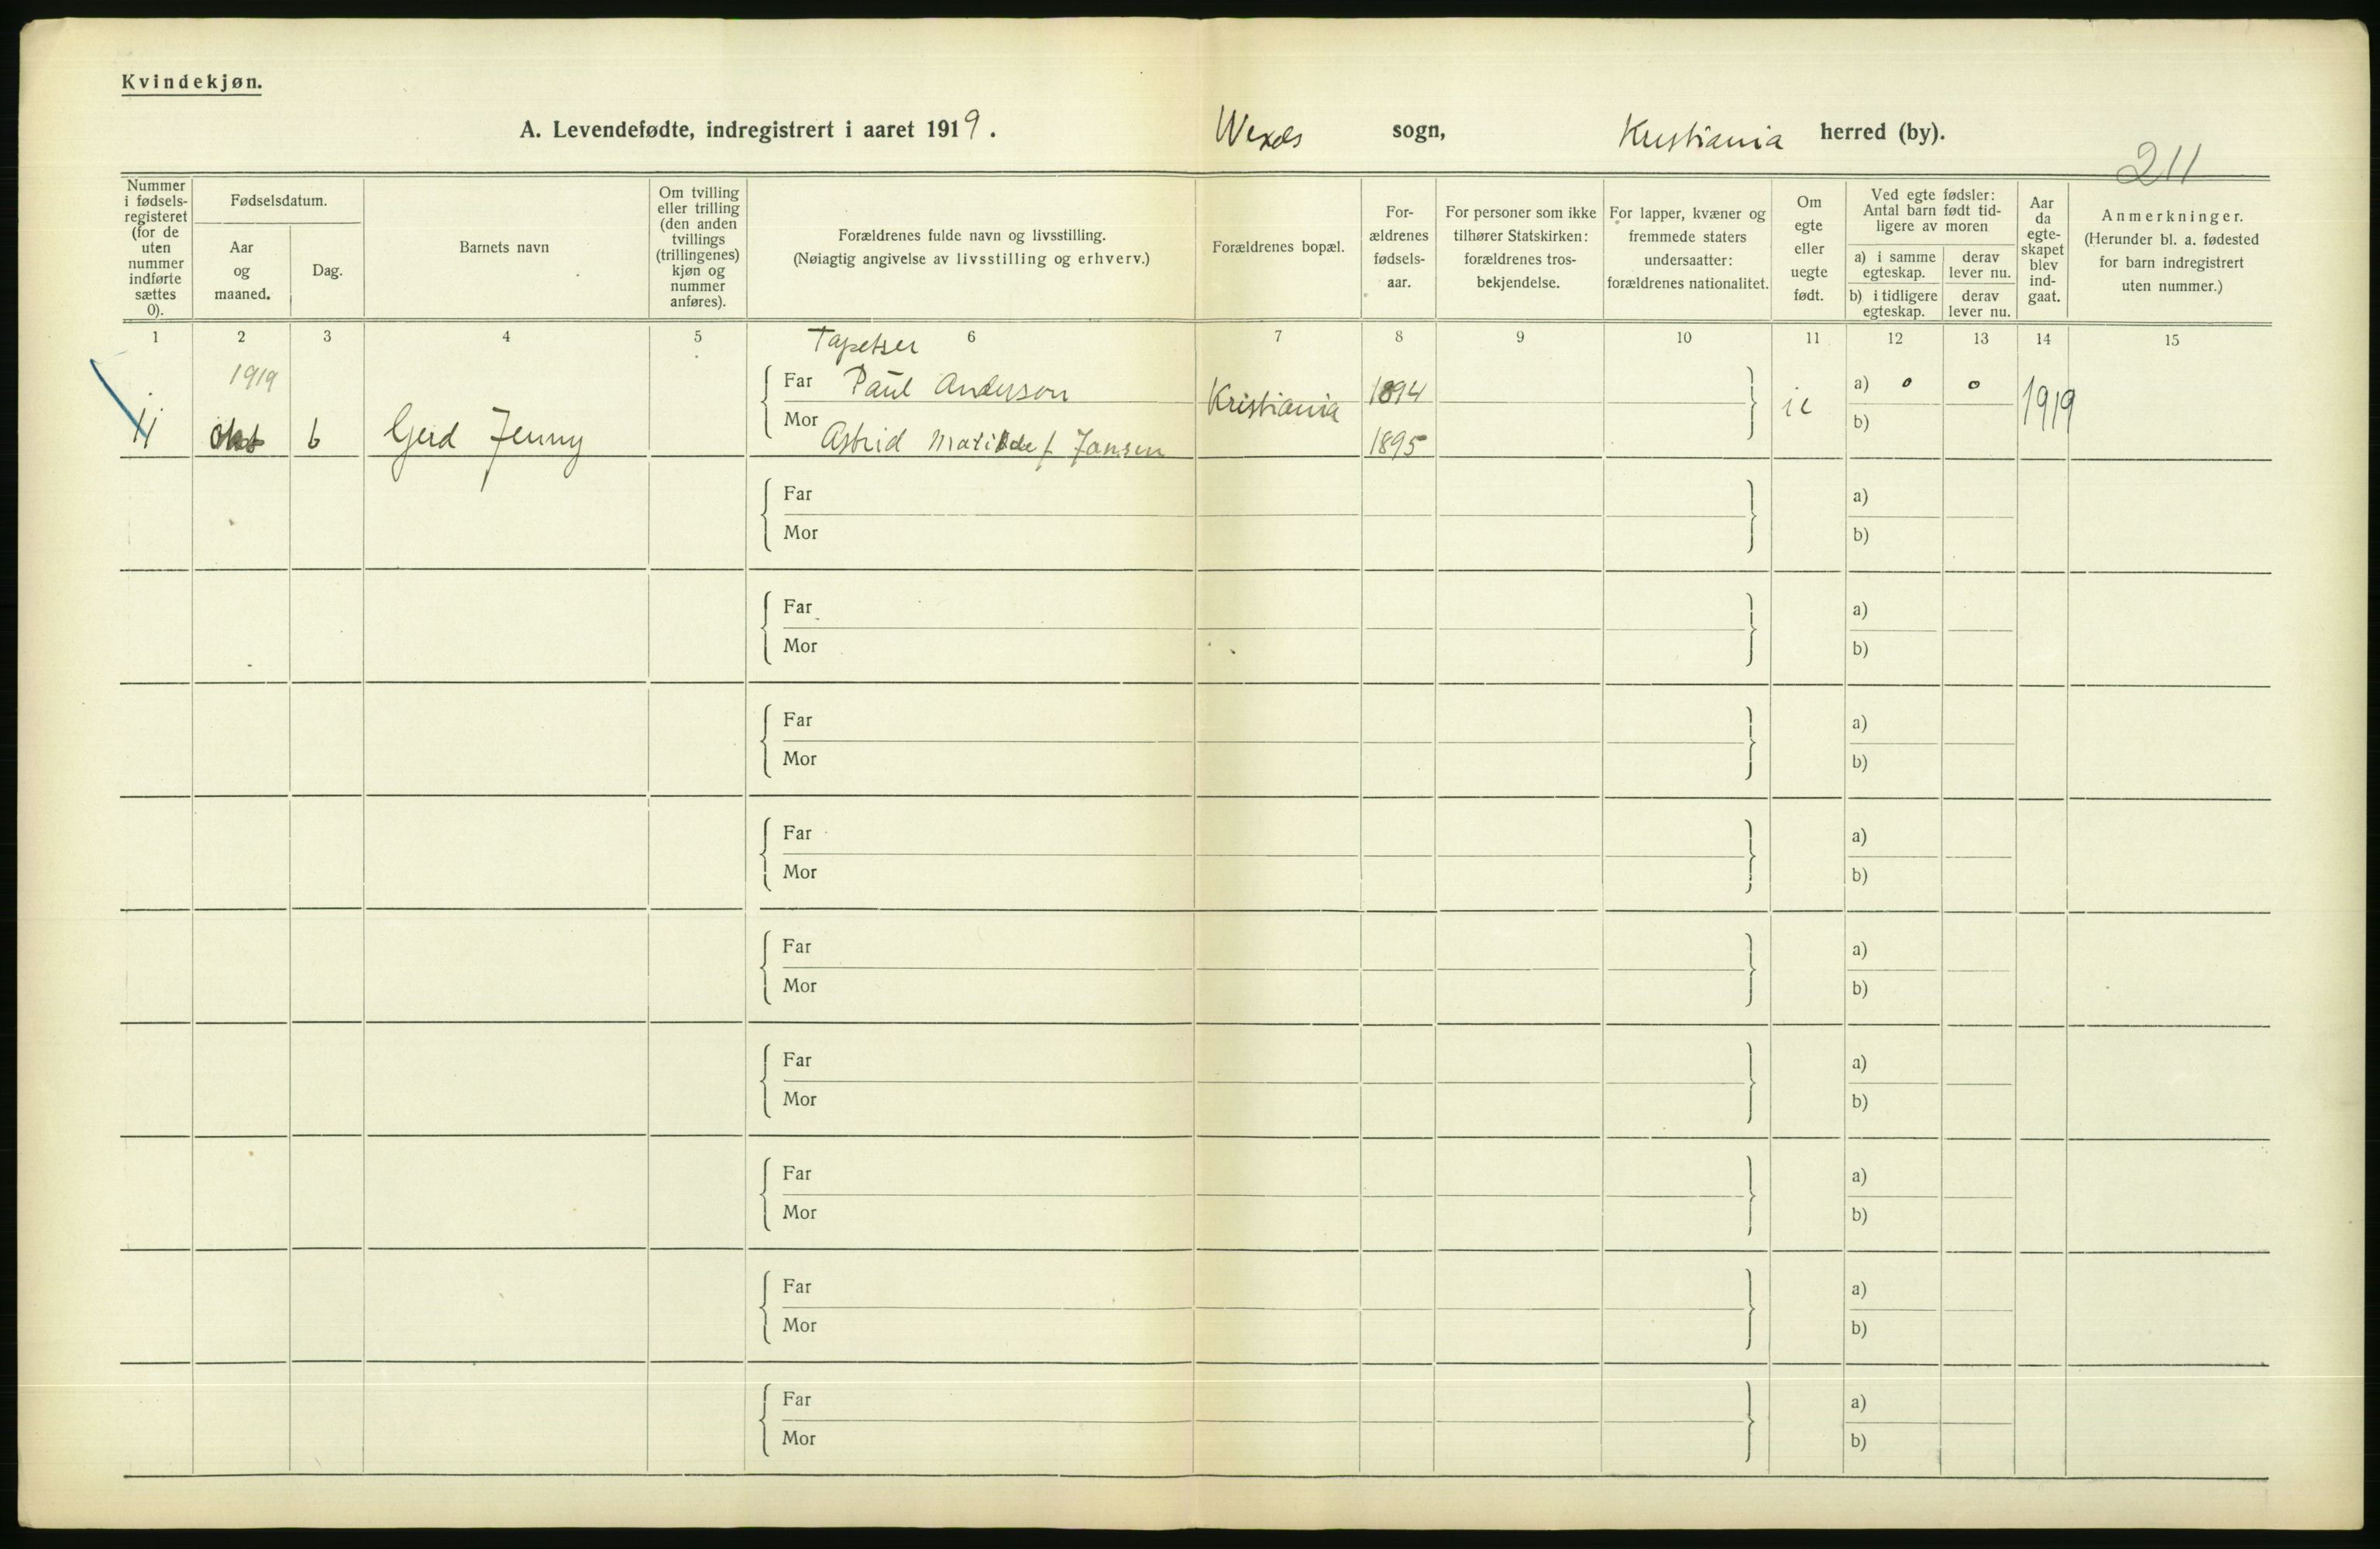 Kvindekjøn.
A. Levendefødte, indregistrert i aaret 1919.
Wexels sogn, Kristiania herred (by).
211
Nummer i fødsels-registeret (for de uten nummer indførte sættes 0).
Fødselsdatum.
Aar og maaned.
Dag.
Barnets navn
Om tvilling eller trilling (den anden tvillings (trillingenes) kjøn og nummer anføres).
Forældrenes fulde navn og livsstilling.
(Nøiagtig angivelse av livsstilling og erhverv.)
Forældrenes bopæl.
For-ældrenes fødsels-aar.
For personer som ikke tilhører Statskirken: forældrenes tros-bekjendelse.
For lapper, kvæner og fremmede staters undersaatter: forældrenes nationalitet.
Om egte eller uegte født.
Ved egte fødsler: Antal barn født tid-ligere av moren
a) i samme egteskap.
derav lever nu.
b) i tidligere egteskap.
derav lever nu.
Aar da egte-skapet blev ind-gaat.
Anmerkninger.
(Herunder bl. a. fødested for barn indregistrert uten nummer.)
1 2 3 4 5 6 7 8 9 10 11 12 13 14 15
Tapetser
1919
Far Paul Anderson Kristiania 1894 a) 0 0 1919
okt 6 Gerd Jenny
Mor Astrid Matilde f. Jansen 1895 b)
Far a)
Mor b)
Far a)
Mor b)
Far a)
Mor b)
Far a)
Mor b)
Far a)
Mor b)
Far a)
Mor b)
Far a)
Mor b)
Far a)
Mor b)
Far a)
Mor b)